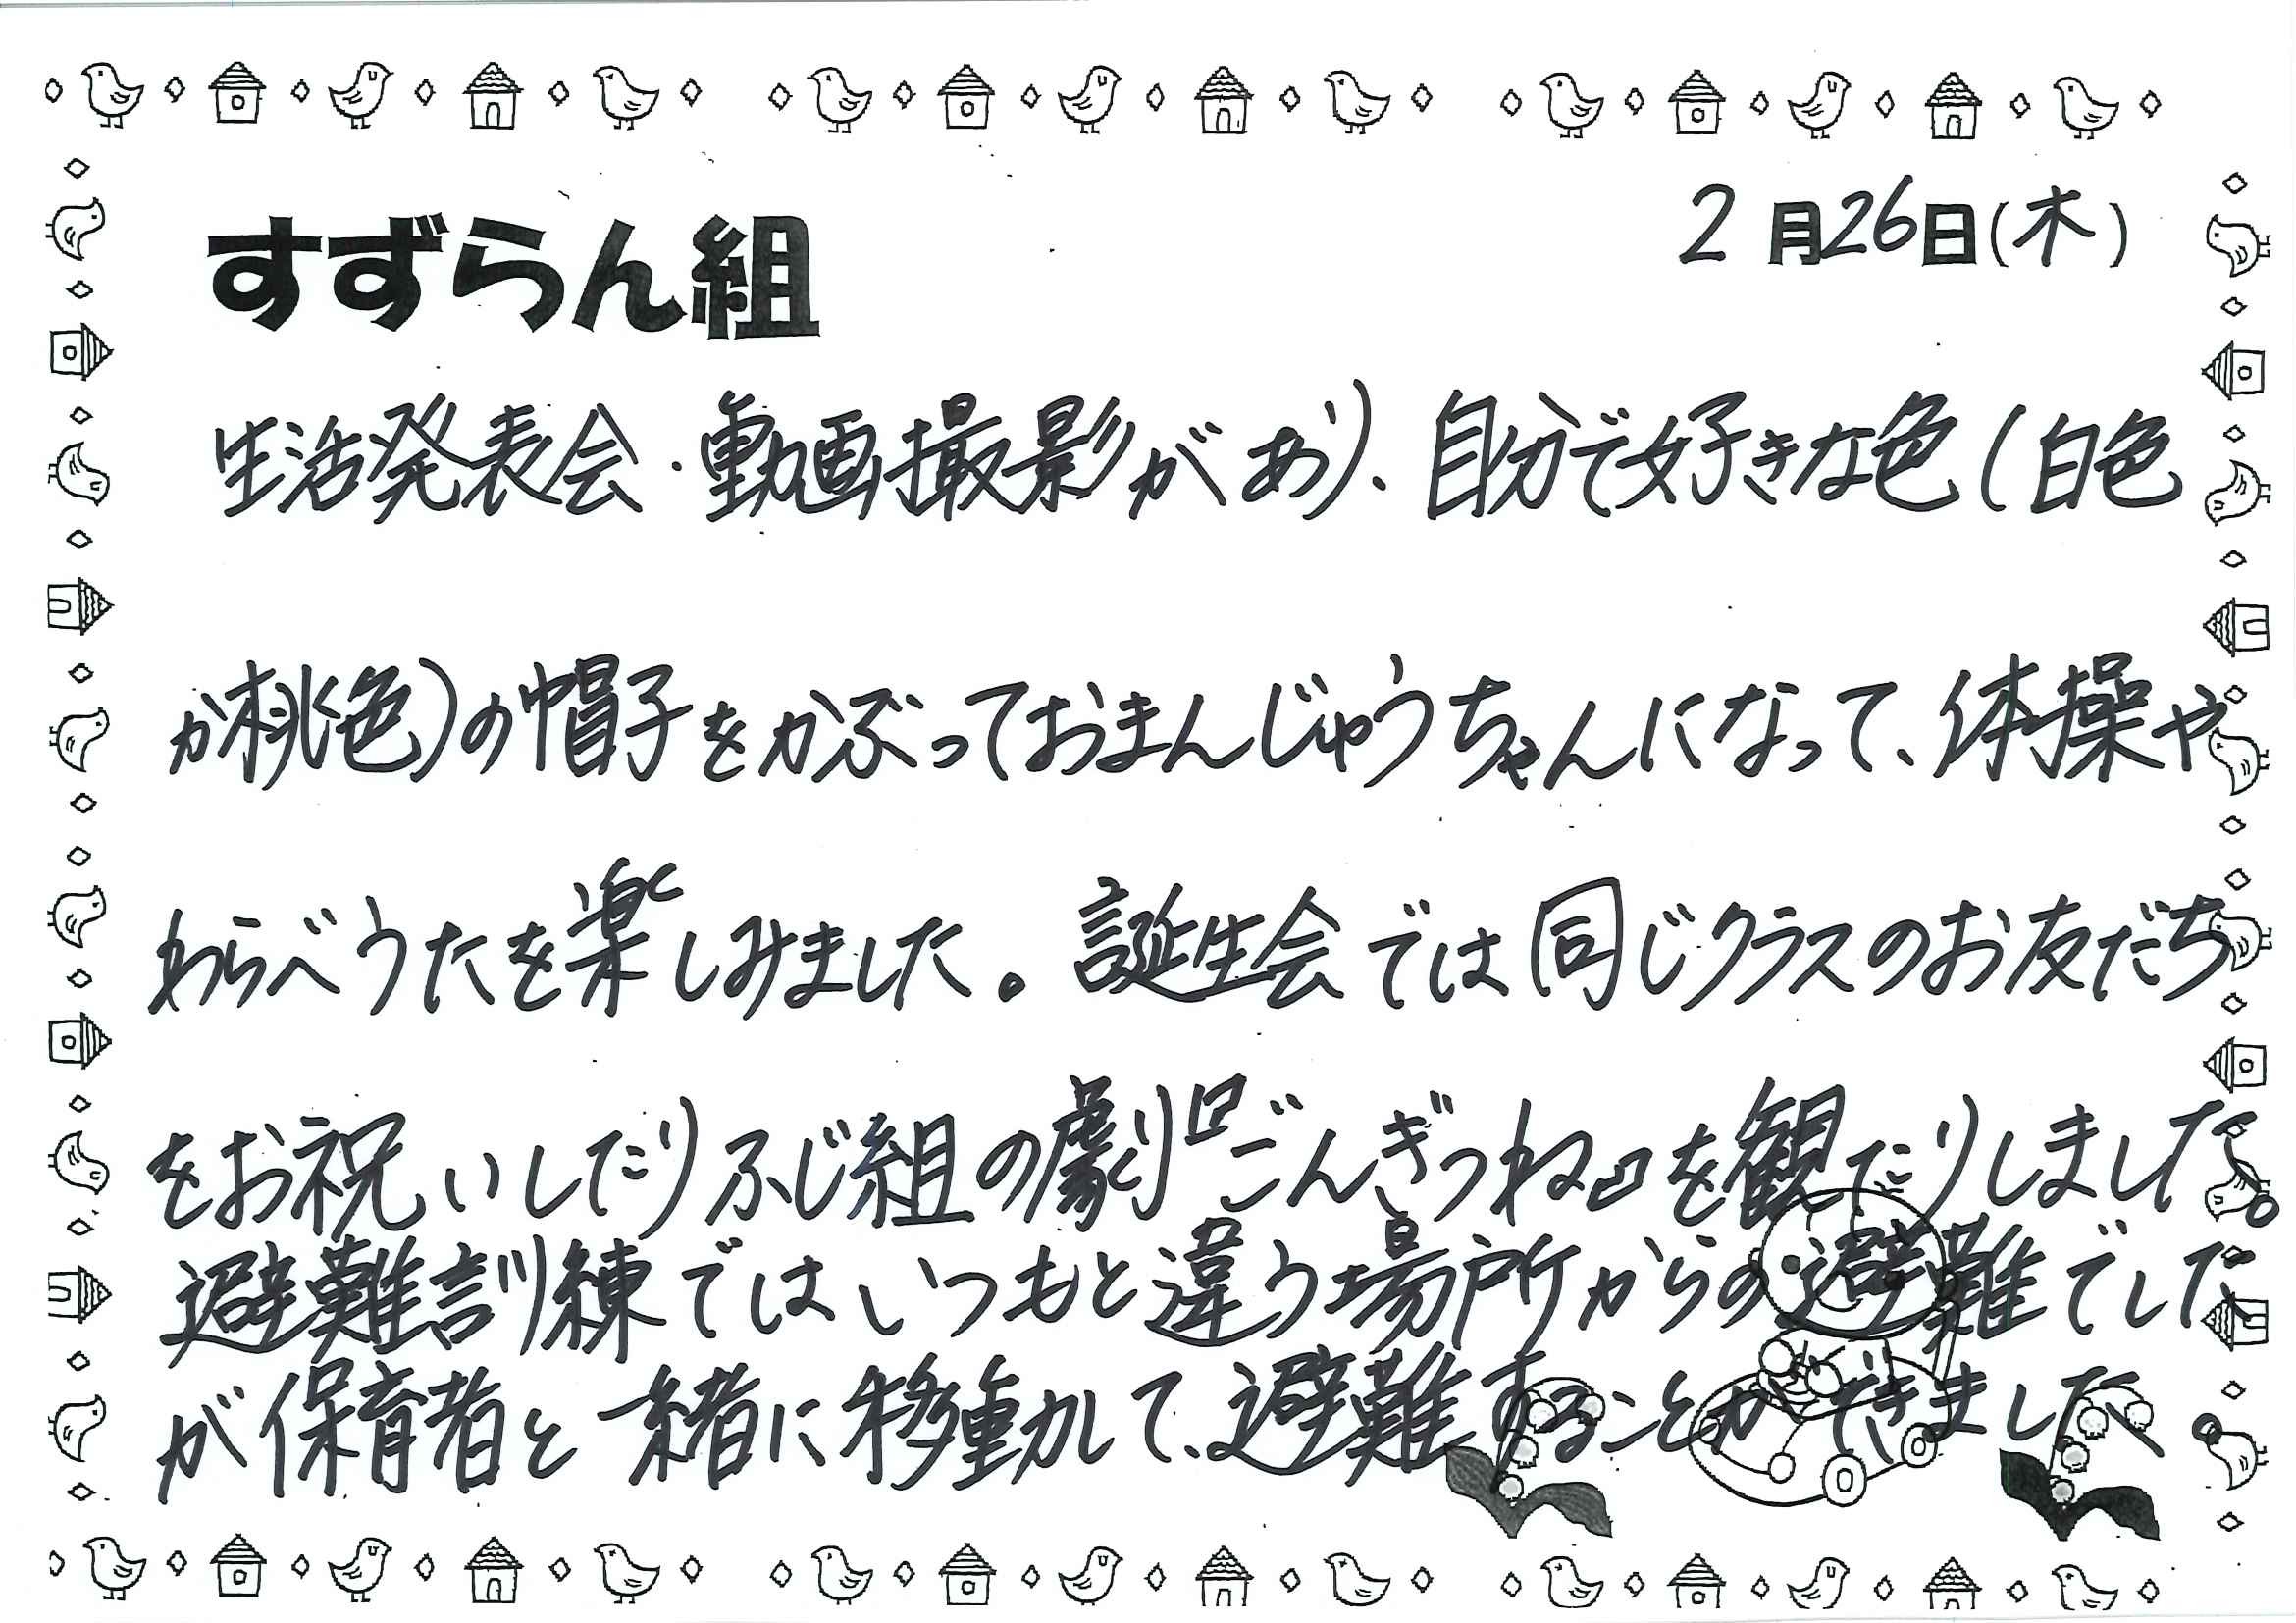 2月26日(木)
すずらん組
生活発表会・動画撮影があり、自分で好きな色(白色
か桃色)の帽子をかぶっておまんじゅうちゃんになって、体操や
わらべうたを楽しみました。誕生会では同じクラスのお友だち
をお祝いしたりふじ組の劇『ごんぎつね』を観たりしました。
避難訓練ではいつもと違う場所からの避難でした
が保育者と一緒に移動して、避難することができました。